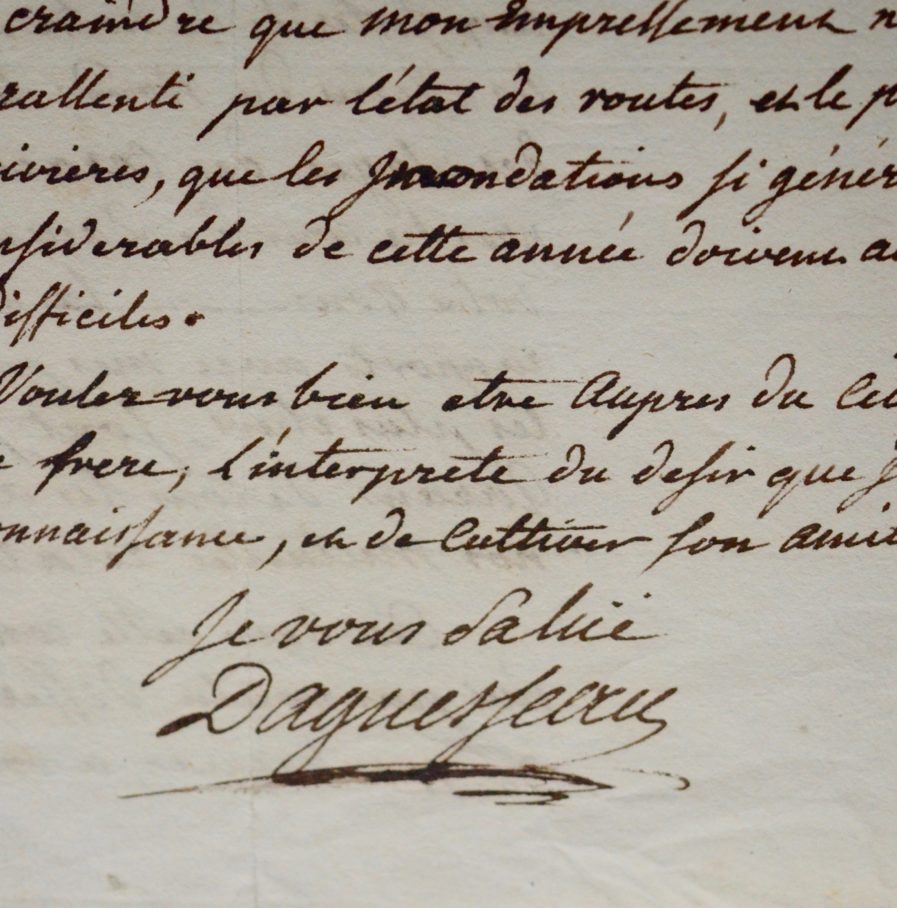 craindre que mon Empressement n
rallenti par l'état des routes, et le p
ivieres, que les Jnnondations si génér
nsiderables de cette année doivent a
difficiles.
Voulez vous bien etre Aupres du Cit
e frere, l'interprete du desir que J
onnaissance, et de Cultiver son amit
Je vous Saluë
Daguesseau